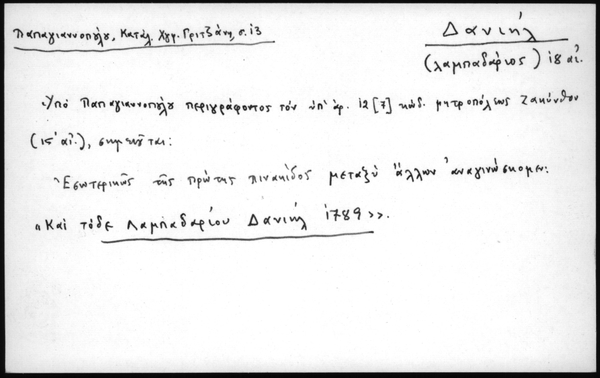 Παπαγιαννοπούλου, Κατάλ. Χγφ. Γριτζάνη, σ. 13
Δανιήλ
(λαμπαδάριος) 18 αἰ.
Ὑπὸ Παπαγιαννοπούλου περιγράφοντος τὸν ὑπ' ἀρ. 12 [7] κώδ. μητροπόλεως Ζακύνθου
(ις' αἰ.), σημειοῦται:
Ἐσωτερικῶς τῆς πρώτης πινακίδος μεταξὺ ἄλλων ἀναγινώσκομεν:
« Καὶ τόδε Λαμπαδαρίου Δανιήλ 1789 ».